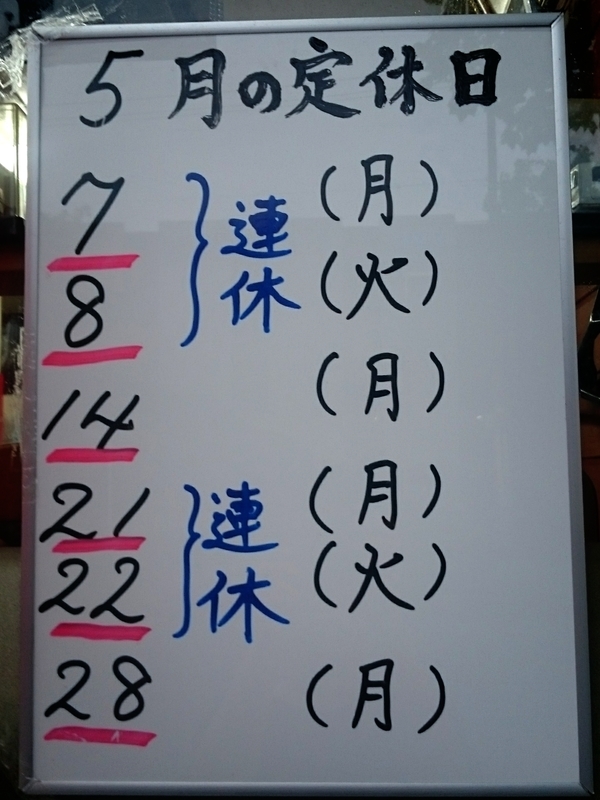 5月の定休日
7 (月)
連休
8 (火)
14 (月)
21 (月)
連休
22 (火)
28 (月)